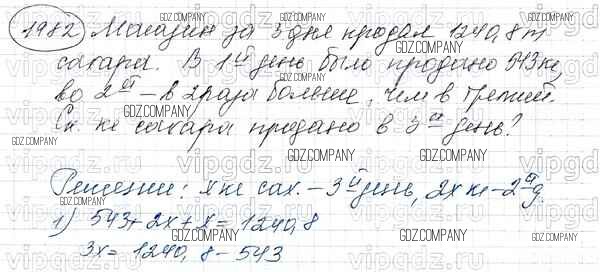 1982 Магазин за 3 дня продал 1240,8 т
сахара. В 1ый день было продано 543 кг,
во 2ый - в 2 раза больше, чем в третий.
Ск. кг сахара продано в 3ий день?
Решение: x кг сах. - 3ий день, 2x кг - 2ый д.
1) 543 + 2x + x = 1240,8
3x = 1240,8 - 543
GDZ.COMPANY
vipgdz.ru